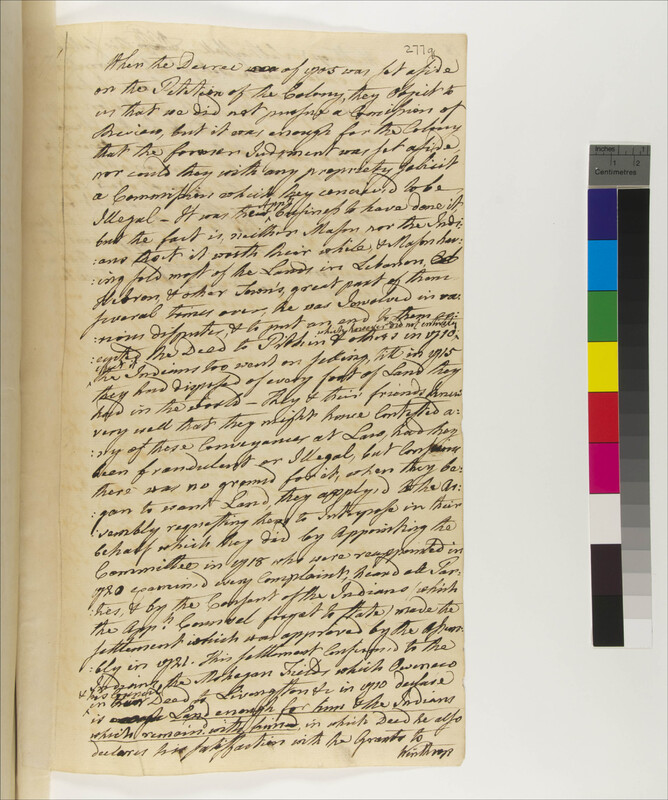 277a
When the Decree of 1705 was set aside
on the Petition of the Colony, they object to
us that we did not prosecute a Comission of
Review, but it was enough for the Colony
that the former Judgment was set aside
nor could they with any propriety solicit
a Commission which they conceiv'd to be
Illegal - It was their Appts business to have done it
but the fact is, neither Mason nor the Indi-
:ans tho't it worth their while, & Mason hav-
:ing sold most of the Lands in Lebanon,
Hebron, & other Towns, great part of them
several times over, he was Involved in va-
:rious disputes, & to put an end to them ex-
:ecuted the Deed to Pitkin & others in 1710.
which however did not intirely
the Indians too went on selling, till in 1715
they had disposed of every foot of Land they
had in the world - they & their friends knew
very well that they might have Contested a-
:ny of these Conveyances at Law, had they
been fraudulent or Illegal, but Conscious
there was no ground for it, when they be-
:gan to want Land, they applyed to the As-
:sembly requesting them to Interpose in their
behalf which they did by Appointing the
Committee in 1718 who were reappointed in
1720 examined every Complaint, heard all Par-
:ties, & by the Consent of the Indians (which
the Appts Council forgot to state) made the
settlement which was approved by the Assem-
:bly in 1721. This settlement Confirmed to the
Indians the Mohegan Fields which Oweneco
& his
in Deed to Livingston &c in 1710 declare
is Land enough for him & the Indians
which remain with him, in which Deed he also
declares his satisfaction with the Grants to
Winthrop